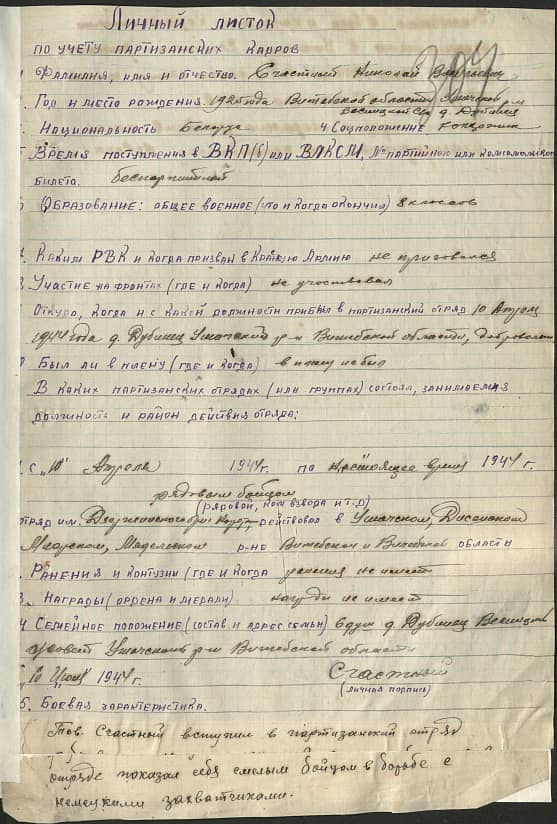 Личный листок
по учету партизанских кадров
Фамилия, имя и отчество. Счастный Николай
Год и место рождения. 1925 года Витебской области Ушачский
р-н
Весницкий с/с д. Дубинец
Национальность Белорус 4. Соцположение
Время поступления в ВКП(б) или ВЛКСМ, № партийного или комсомольского
билета. беспартийный
Образование: общее военное (что и когда окончил) 8 классов
Каким РВК и когда призван в Красную Армию не призывался
Участие на фронтах (где и когда) не участвовал
Откуда, когда и с какой должности прибыл в партизанский отряд 10 Апрель
1944 года д. Дубинец Ушачский р-н Витебской области, добровольно
Был ли в плену (где и когда) в плену не был
В каких партизанских отрядах (или группах) состоял, занимаемая
должность и район действия отряда:
с "10" Апреля 1944 г. по настоящее время 1944 г.
рядовым бойцом
(рядовой, ком взвода и т.д)
отряд им. Дзержинского действовал в Ушачском, Дисненском
Миорском, Мядельском р-не Вилейской и Витебской области
Ранения и контузии (где и когда ранения не имеет
Награды (ордена и медали) награды не имеет
4 Семейное положение (состав и адрес семьи) д. Дубинец Весницкий
Ушачского р-н Витебской области
10 Июля 1944 г. Счастный
(личная подпись)
5. Боевая характеристика.
Тов. Счастный вступил в партизанский отряд
отряде показал себя смелым бойцом в борьбе с
немецкими захватчиками.